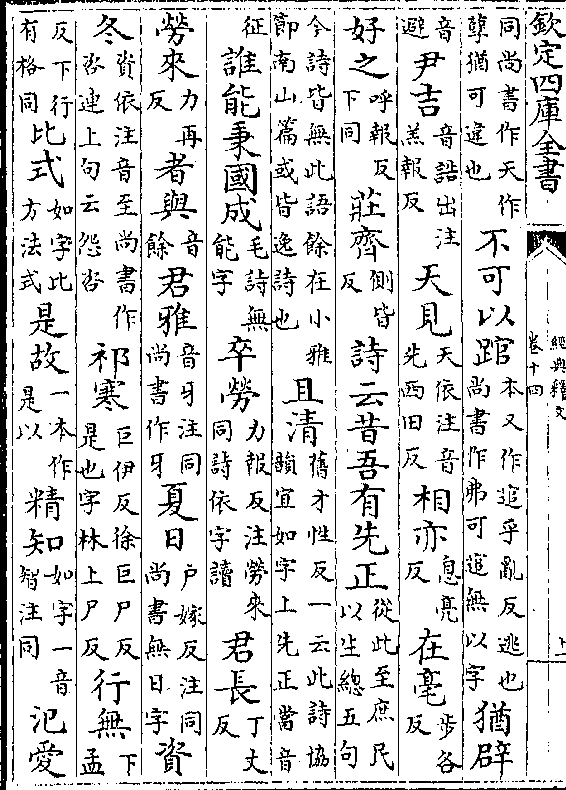 欽定四庫全書
經典釋文
卷十四
同尚書作天作孽猶可違也 不可以 本又作逭乎亂反逃也尚書作弗可逭無以字 猶辟
音避 尹吉 音誥出注羔報反 天見 天依注音先西田反 相亦 息亮反 在亳 步各反
好之 呼報反下同 莊齊 側皆反 詩云昔吾有先正 從此至庶民以生總五句
今詩皆無此語餘在小雅節南山篇或皆逸詩也 且清 舊才性反一云此詩協韻宜如字上先正當音
征 誰能秉國成 毛詩無能字 卒勞 力報反注勞來同詩依字讀 君長 丁丈反
勞來 力再反 者與 音餘 君雅 音牙注同尚書作牙 夏日 户嫁反注同尚書無日字 資
冬 資依注音至尚書作咨連上句云怨咨 祁寒 巨伊反徐巨尸反是也字林上尸反 行無 下孟
反下行有格同 比式 如字比方法式 是故 一本作是以 精知 如字一音智注同 汜愛